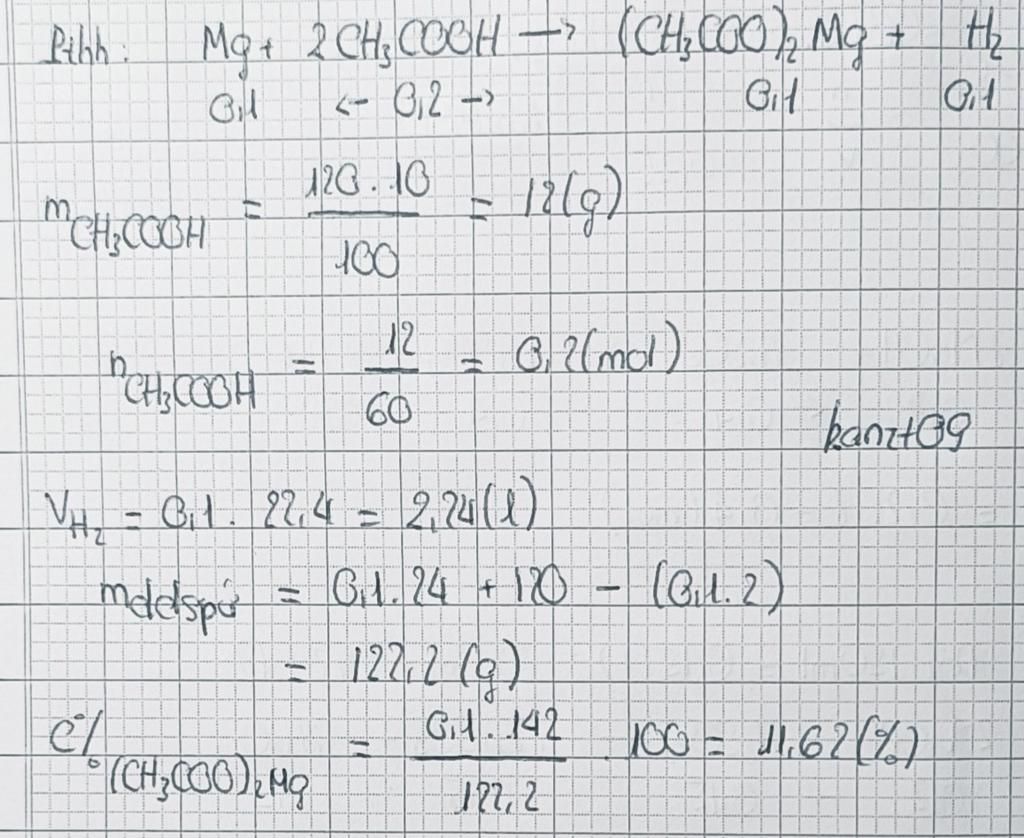 Pthh: Mg + 2CH₃COOH → (CH₃COO)₂Mg + H₂
0,1 ← 0,2 → 0,1 0,1
mCH₃COOH = 120.10/100 = 12(g)
nCH₃COOH = 12/60 = 0,2(mol)
kanzt09
VH₂ = 0,1. 22,4 = 2,24(l)
mddspứ = 0,1.24 + 120 - (0,1.2)
= 122,2 (g)
C%(CH₃COO)₂Mg = 0,1.142/122,2 .100 = 11,62(%)